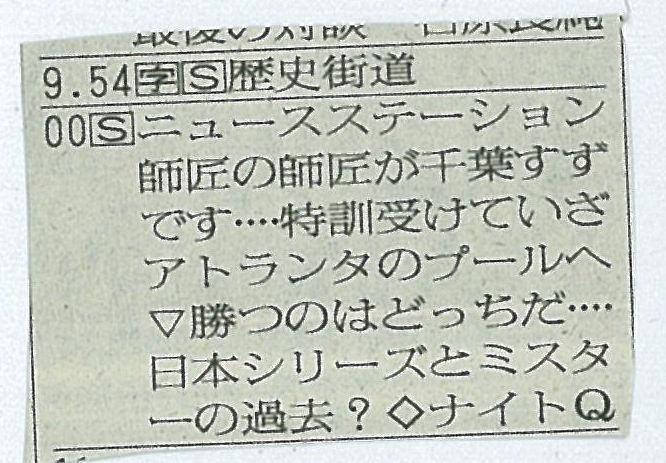 最後の対談 石原良純
9.54字S歴史街道
00Sニュースステーション
師匠の師匠が千葉すず
です‥‥特訓受けていざ
アトランタのプールへ
▽勝つのはどっちだ‥‥
日本シリーズとミスタ
ーの過去？◇ナイトQ